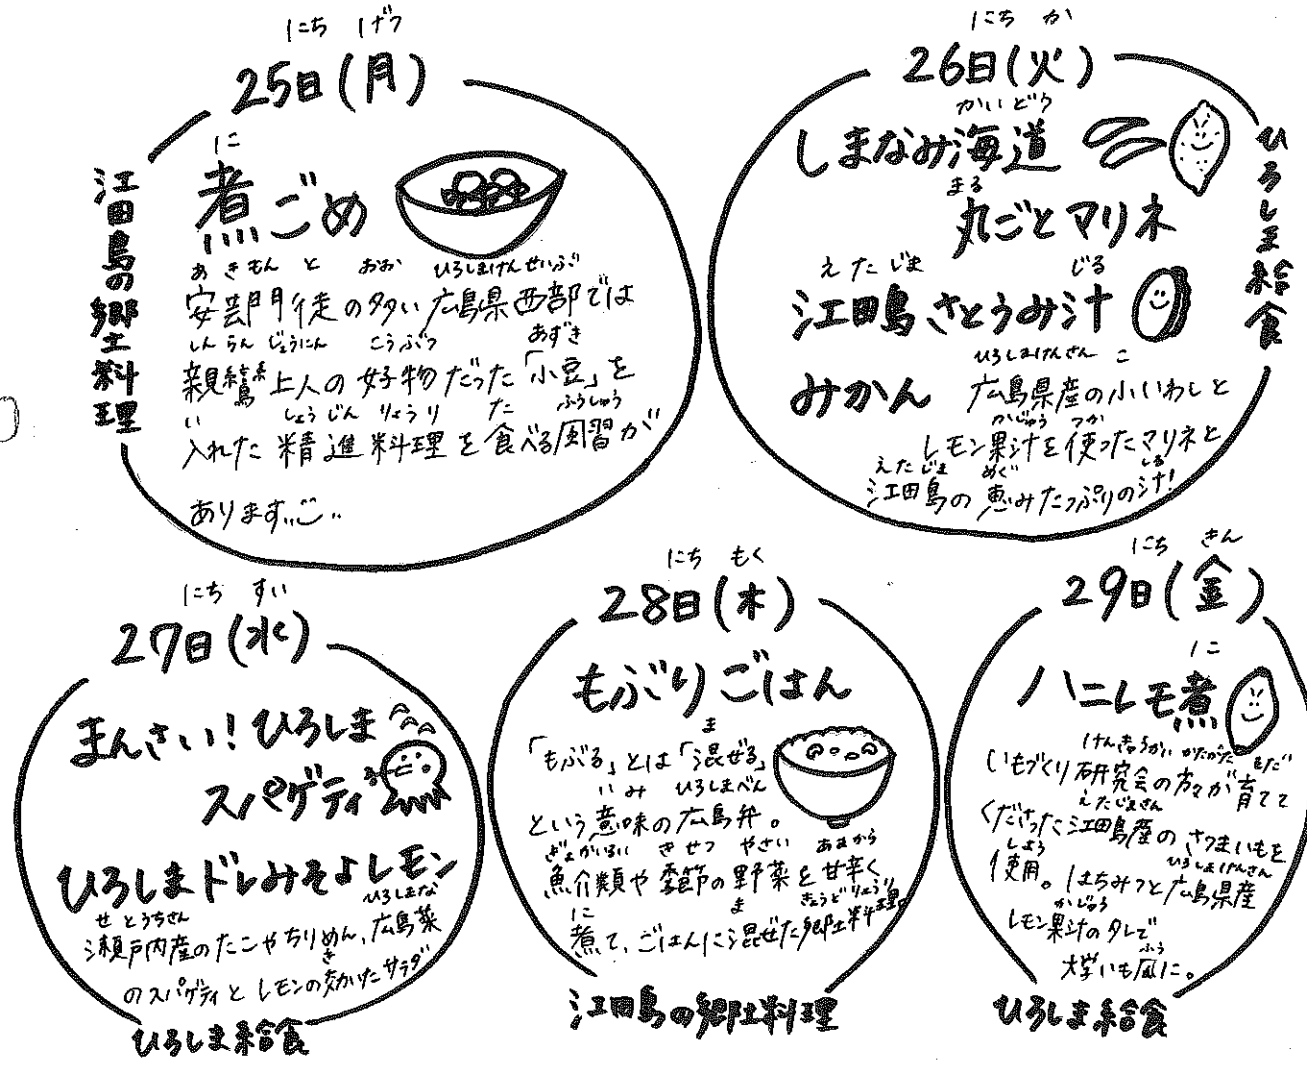 にち げつ
25日(月)
江田島の郷土料理
に
煮ごめ
あきもんと おお ひろしまけんせいぶ
安芸門徒の多い広島県西部では
しんらんしょうにん こうぶつ あずき
親鸞上人の好物だった「小豆」を
い しょうじんりょうり た ふうしゅう
入れた精進料理を食べる風習が
あります。
にち か
26日(火)
ひろしま給食
かいどう
しまなみ海道
まる
丸ごとマリネ
えたじま じる
江田島さとうみ汁
みかん
ひろしまけんさん こ
広島県産の小いわしと
かじゅう つか
レモン果汁を使ったマリネと
えたじま めぐ しる
江田島の恵みたっぷりの汁!
にち すい
27日(水)
まんさい!ひろしま
スパゲティ
ひろしまドレみそよレモン
せとうちさん ひろしまな
瀬戸内産のたこやちりめん、広島菜
き
のスパゲティとレモンの効かいたサラダ
ひろしま給食
にち もく
28日(木)
もぶりごはん
ま
「もぶる」とは「混ぜる」
いみ ひろしまべん
という意味の広島弁。
ぎょかいるい きせつ やさい あまから
魚介類や季節の野菜を甘辛く
に ま きょうどりょうり
煮て、ごはんに混ぜた郷土料理。
江田島の郷土料理
にち きん
29日(金)
に
ハニレモ煮
けんきゅうかい かたがた そだ
いもづくり研究会の方々が育てて
えたじまさん
くださった江田島産のさつまいもを
しよう ひろしまけんさん
使用。はちみつと広島県産
かじゅう
レモン果汁のタレで
ふう
大学いも風に。
ひろしま給食